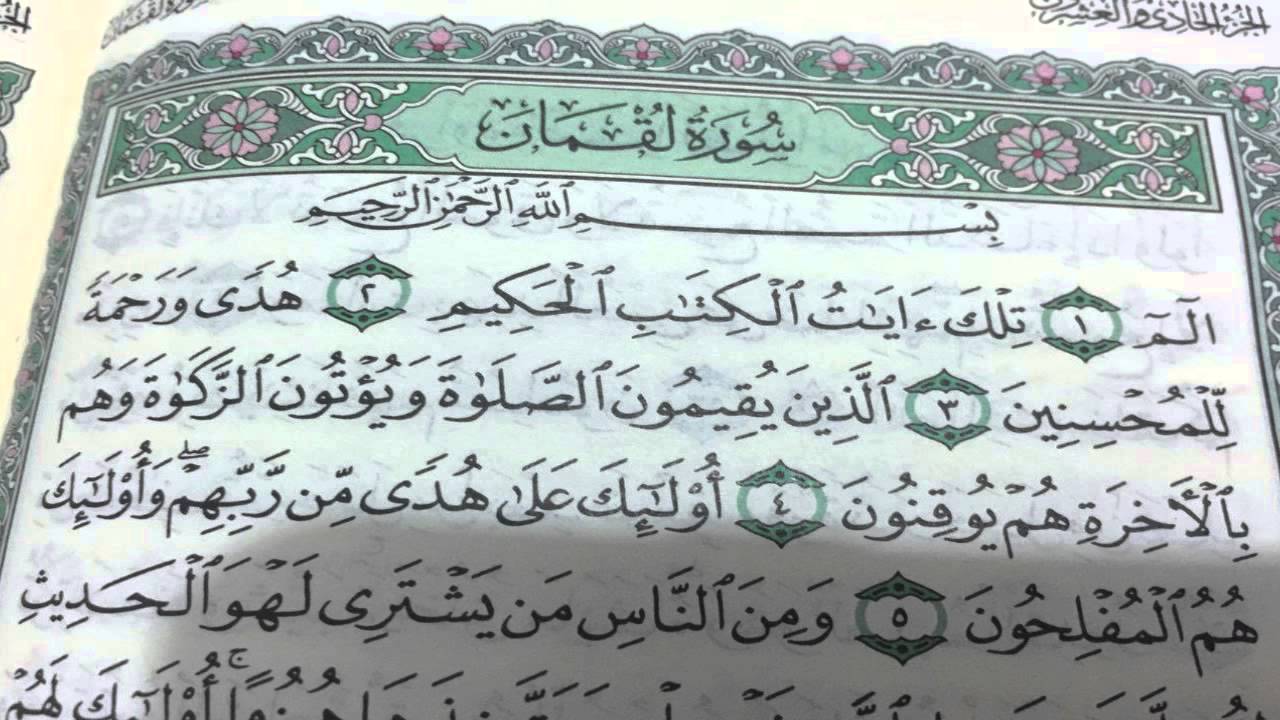 الجزء الحادي والعشرون
سُورَةُ لُقْمَانَ
بِسْمِ ٱللَّهِ ٱلرَّحْمَٰنِ ٱلرَّحِيمِ
الٓمٓ ١ تِلْكَ ءَايَٰتُ ٱلْكِتَٰبِ ٱلْحَكِيمِ ٢ هُدًى وَرَحْمَةً
لِّلْمُحْسِنِينَ ٣ ٱلَّذِينَ يُقِيمُونَ ٱلصَّلَوٰةَ وَيُؤْتُونَ ٱلزَّكَوٰةَ وَهُم
بِٱلْأَخِرَةِ هُمْ يُوقِنُونَ ٤ أُوْلَٰٓئِكَ عَلَىٰ هُدًى مِّن رَّبِّهِمْۖ وَأُوْلَٰٓئِكَ
هُمُ ٱلْمُفْلِحُونَ ٥ وَمِنَ ٱلنَّاسِ مَن يَشْتَرِى لَهْوَ ٱلْحَدِيثِ
أُوْلَٰٓئِكَ لَهُمْ